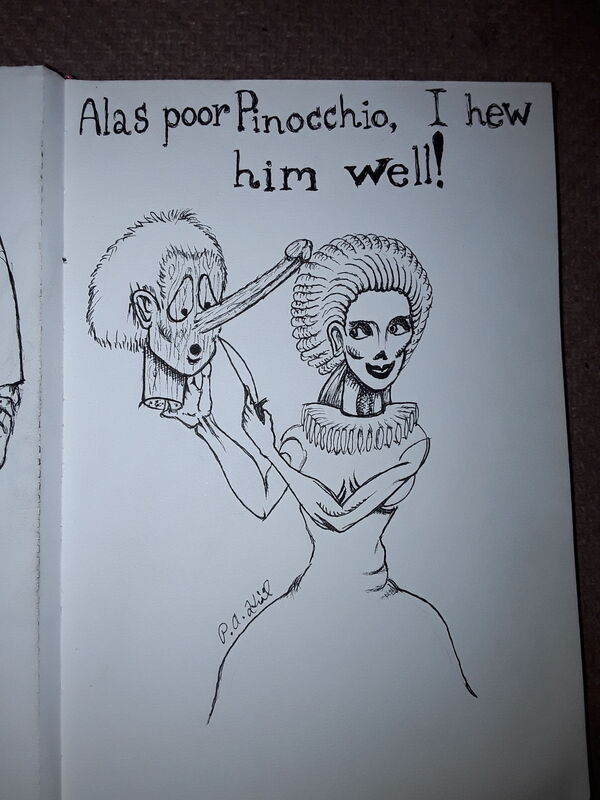 Alas poor Pinocchio, I hew
him well!
P.A.Hill